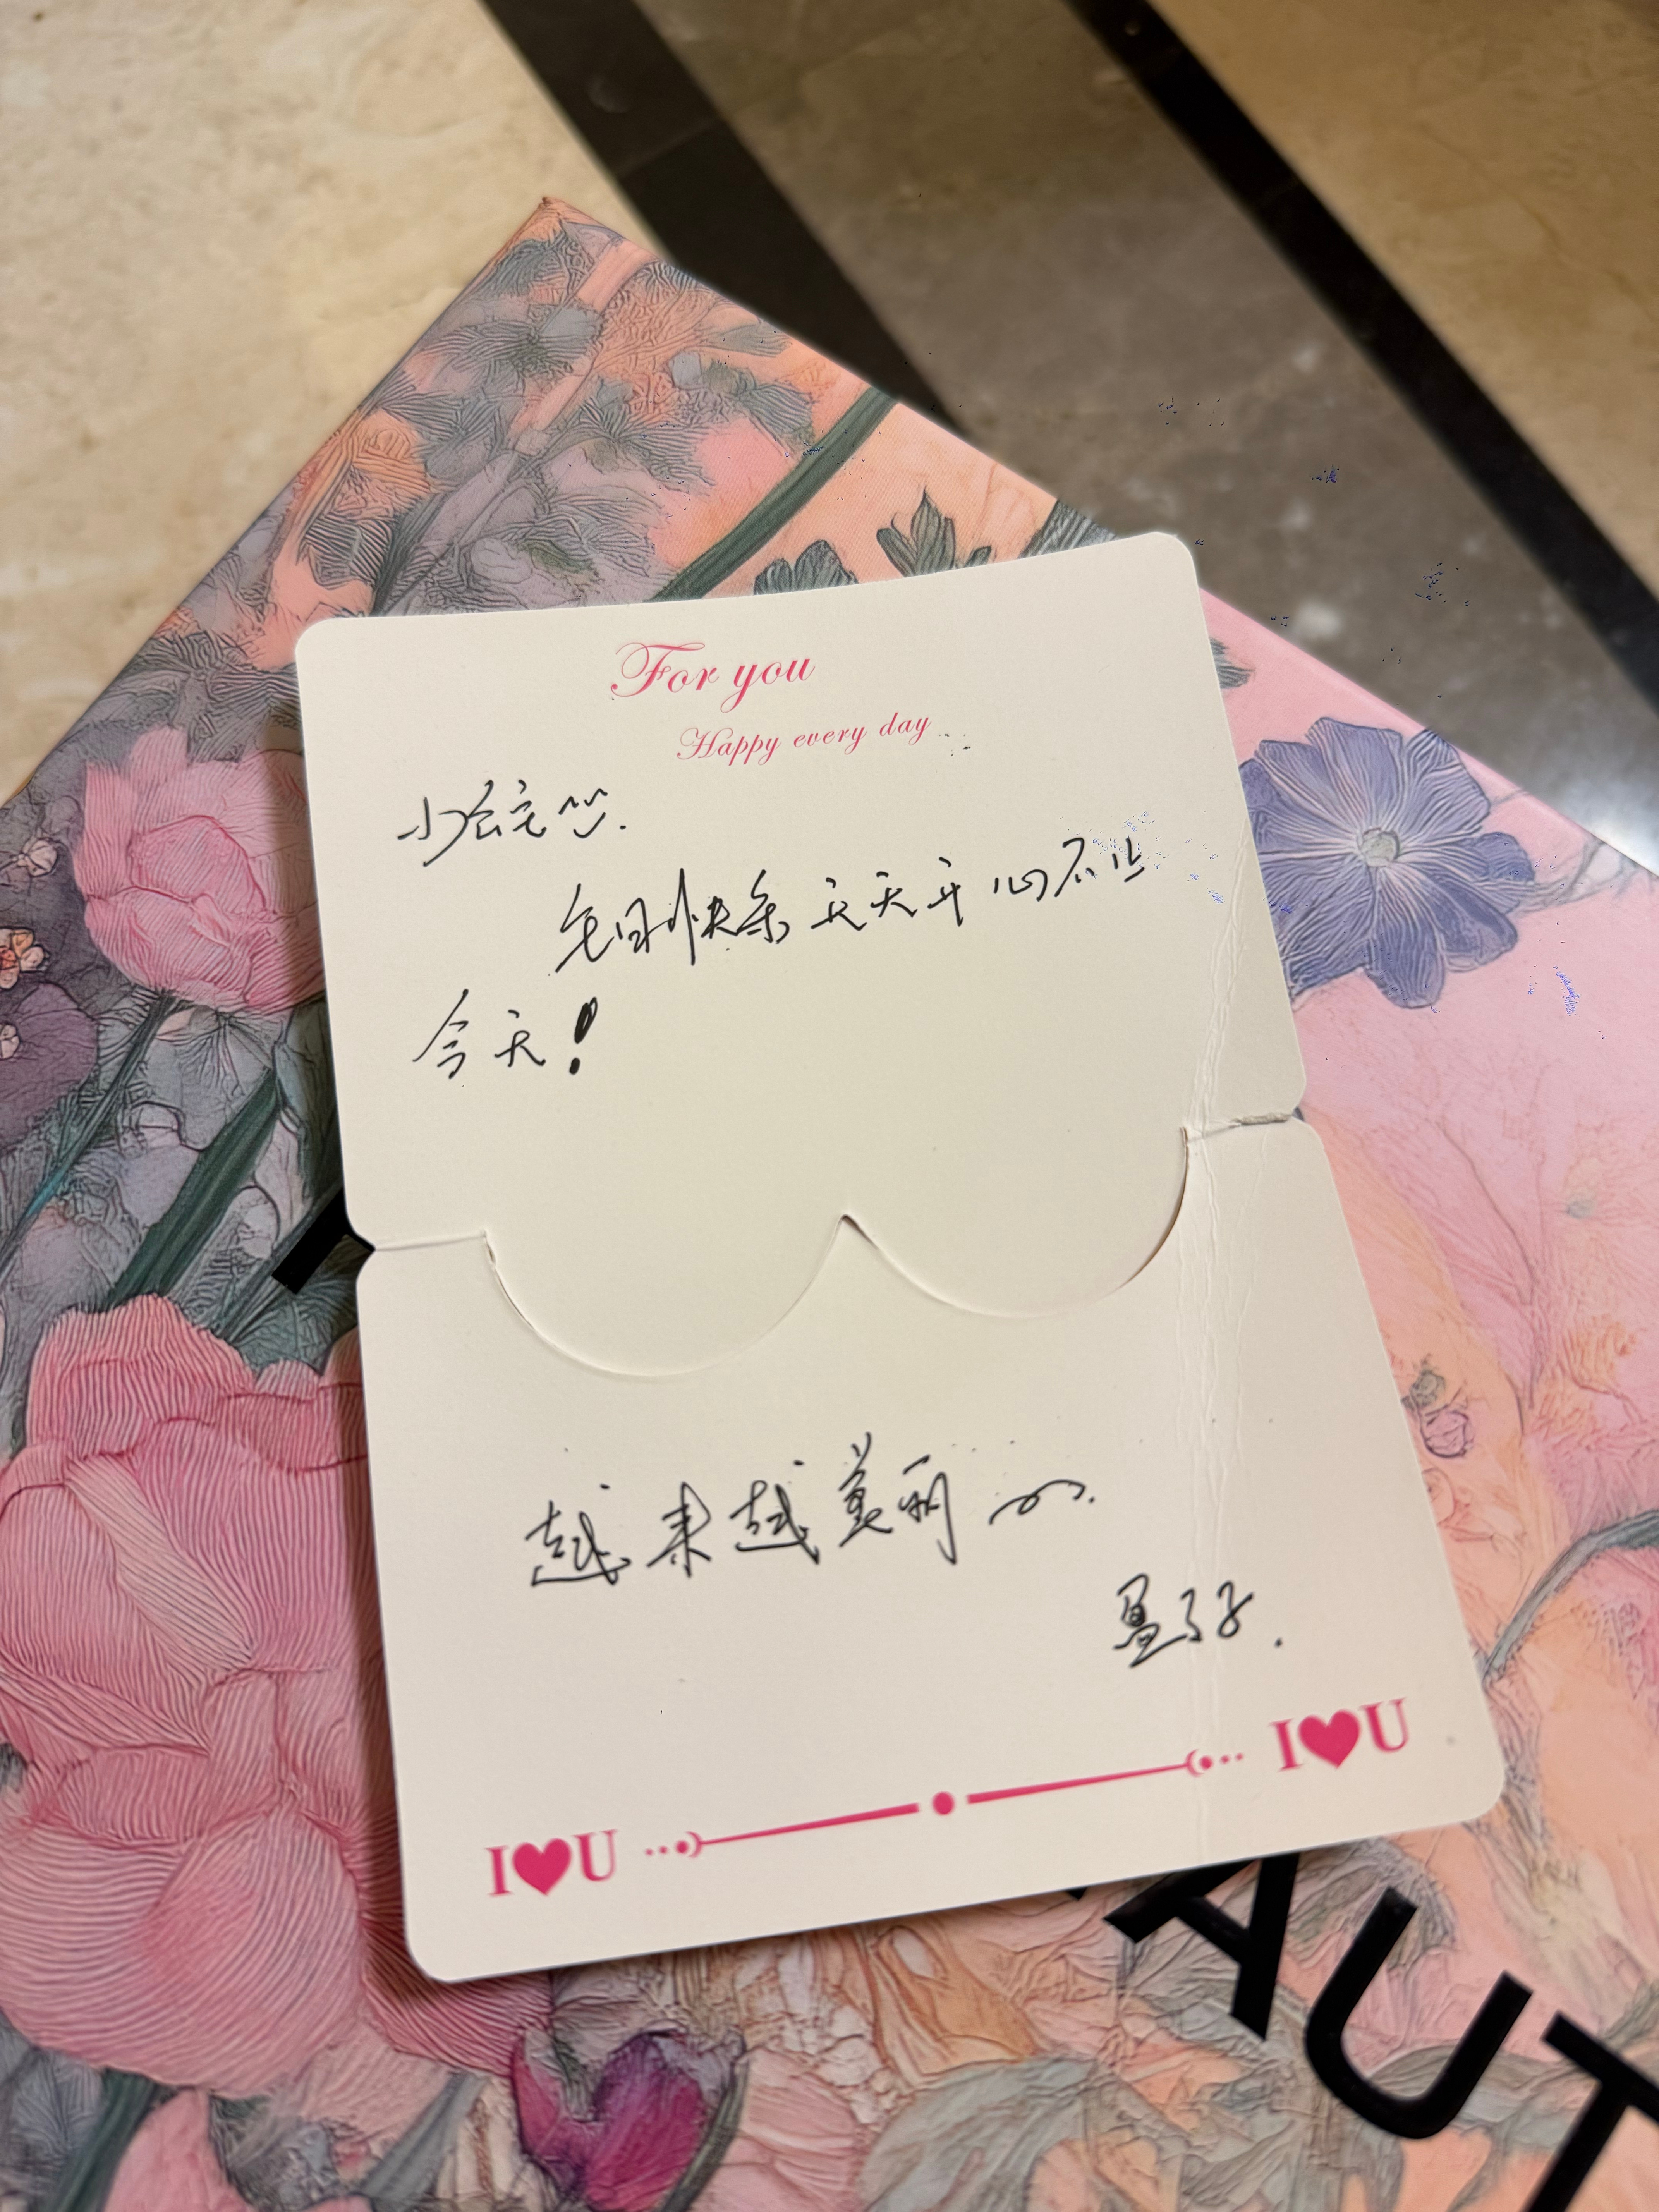 For you
Happy every day
小
每日快乐 天天开心 不止
今天！
越来越美丽
I♥U I♥U
AUT